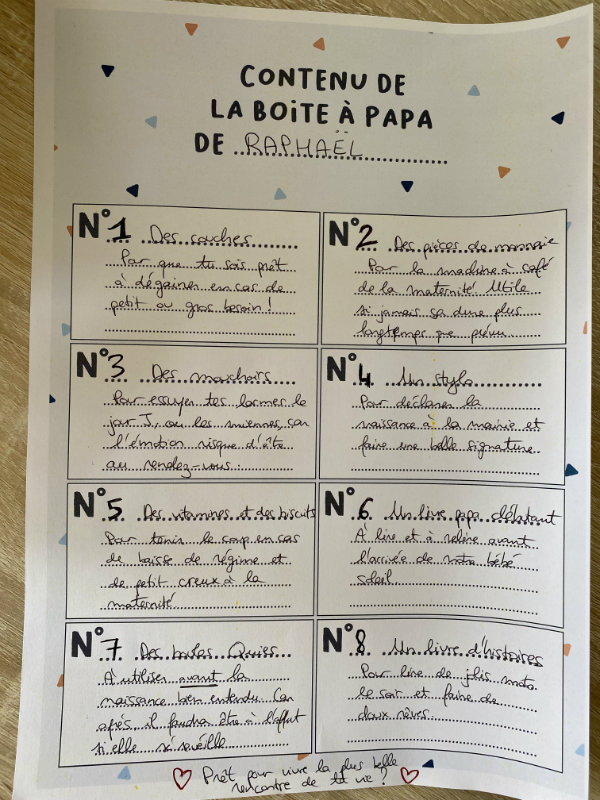 CONTENU DE
LA BOiTE À PAPA
DE RAPHAËL
N°1 Des couches
Pour que tu sois prêt
à dégainer en cas de
petit ou gros besoin !
N°2 Des pièces de monnaie
Pour la machine à café
de la maternité. Utile
si jamais ça dure plus
longtemps que prévu
N°3 Des mouchoirs
Pour essuyer tes larmes le
jour J, ou les miennes, car
l'émotion risque d'être
au rendez-vous.
N°4 Un stylo
Pour déclarer la
naissance à la mairie et
faire une belle signature
N°5 Des vitamines et des biscuits
Pour tenir le coup en cas
de baisse de régime et
de petit creux à la
maternité
N°6 Un livre papa débutant
À lire et à relire avant
l'arrivée de notre bébé
soleil
N°7 Des boules Quies
À utiliser avant la
naissance bien entendu. Car
après il faudra être à l'affût
si elle se réveille
N°8 Un livre d'histoires
Pour lire de jolis mots
le soir et faire de
doux rêves
Prêt pour vivre la plus belle
rencontre de ta vie ?